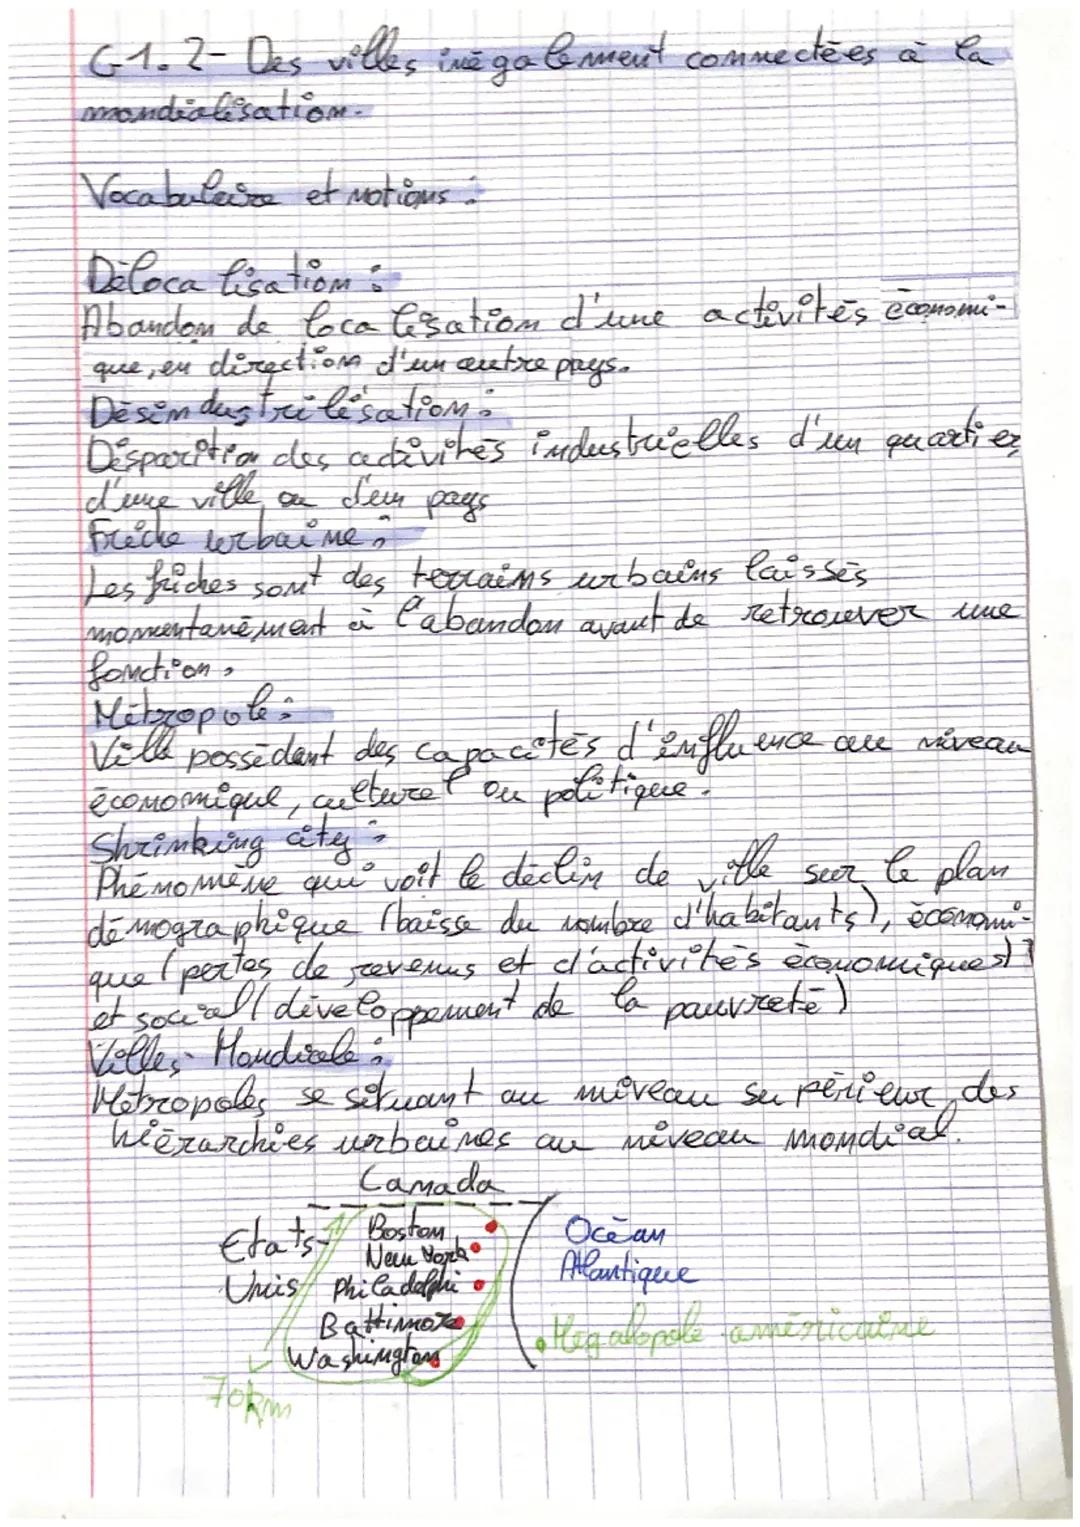 G1.2- Des villes inégalement connectées à la
mondialisation.
Vocabulaire et notions :
Délocalisation :
Abandon de localisation d'une activités économi-
que, en direction d'un autre pays.
Désindustrilisation :
Disparition des activités industrielles d'un quartier
d'une ville, ou d'un pays
Friche urbaine :
Les friches sont des terrains urbains laissés
momentanément à l'abandon avant de retrouver une
fonction.
Métropole :
Ville possédant des capacités d'influence au niveau
économique, culturel ou politique.
Shrinking city :
Phénomène qui voit le déclin de ville sur le plan
démographique (baisse du nombre d'habitants), économi-
que (pertes de revenus et d'activités économiques)
et social (développement de la pauvreté)
Villes-Mondiale :
Métropoles se situant au niveau supérieur des
hiérarchies urbaines au niveau mondial.
Canada
Etats-
Unis
Boston
New York
Philadelphi
Baltimore
Washington
Océan
Atlantique
Mégalopole américaine
70km